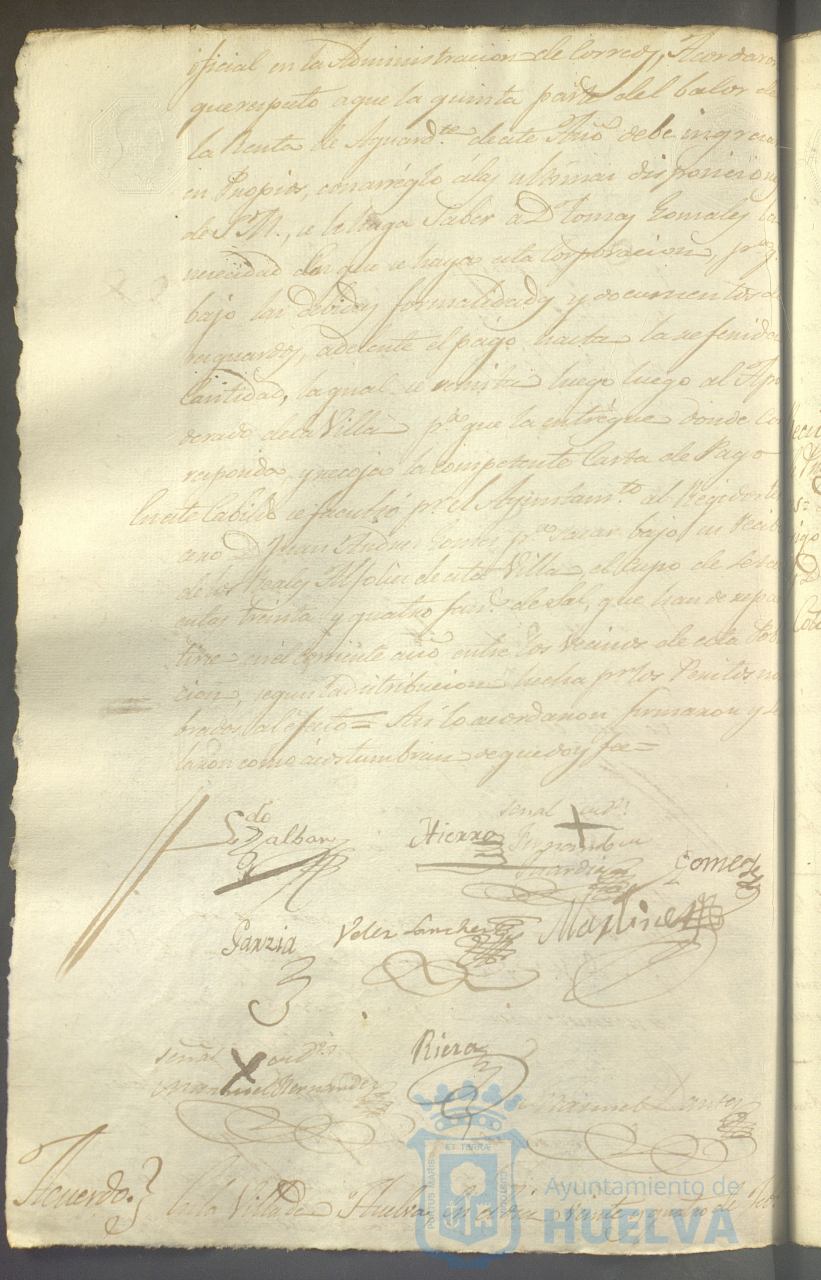 oficial en la Administracion de Correos, Acordaron
que respeto a que la quinta parte del balor de
la Renta de Aguard.te de este Año debe ingresar
en Propios, con arréglo á las ultimas disposiciones
de S. M., se le haga Saber a D.n Tomas Gonzalez la
necesidad en que se haya esta Corporacion, p.a q.e
bajo las debidas formalidades y documentos de
resguardos, adelante el pago hasta la referida
Cantidad, la qual se remita luego luego al Apo
derado de la Villa p.a que la entrégue donde co
rresponda y recoja la competente Carta de Pago
En este Cabildo se facultó p.r el Ayuntam.to al Regidor
D.n Juan Andres p.a sacar bajo su Recibo
de los Reales Alfolies de esta Villa el cupo de
treinta y quatro fan.s de Sal, que han de repar
tirse en el corriente año entre los Vecinos de esta Pobla
cion, segun la distribucion hecha p.r los Peritos nom
brados al efecto = Asi lo acordaron firmaron y
como acostumbran de que doy fee =
L.do Zalbar
Hierro
señal
Guardia
Gomez
Garzia
Velez Sanchez
Martinez
señal
Manuel Hernandez
Riera
Manuel Santos
Acuerdo.
En la Villa de Huelva en el dia veinte y quatro de
PORTUS MARIS
ET TERRAE
CUSTODIA
Ayuntamiento de
HUELVA